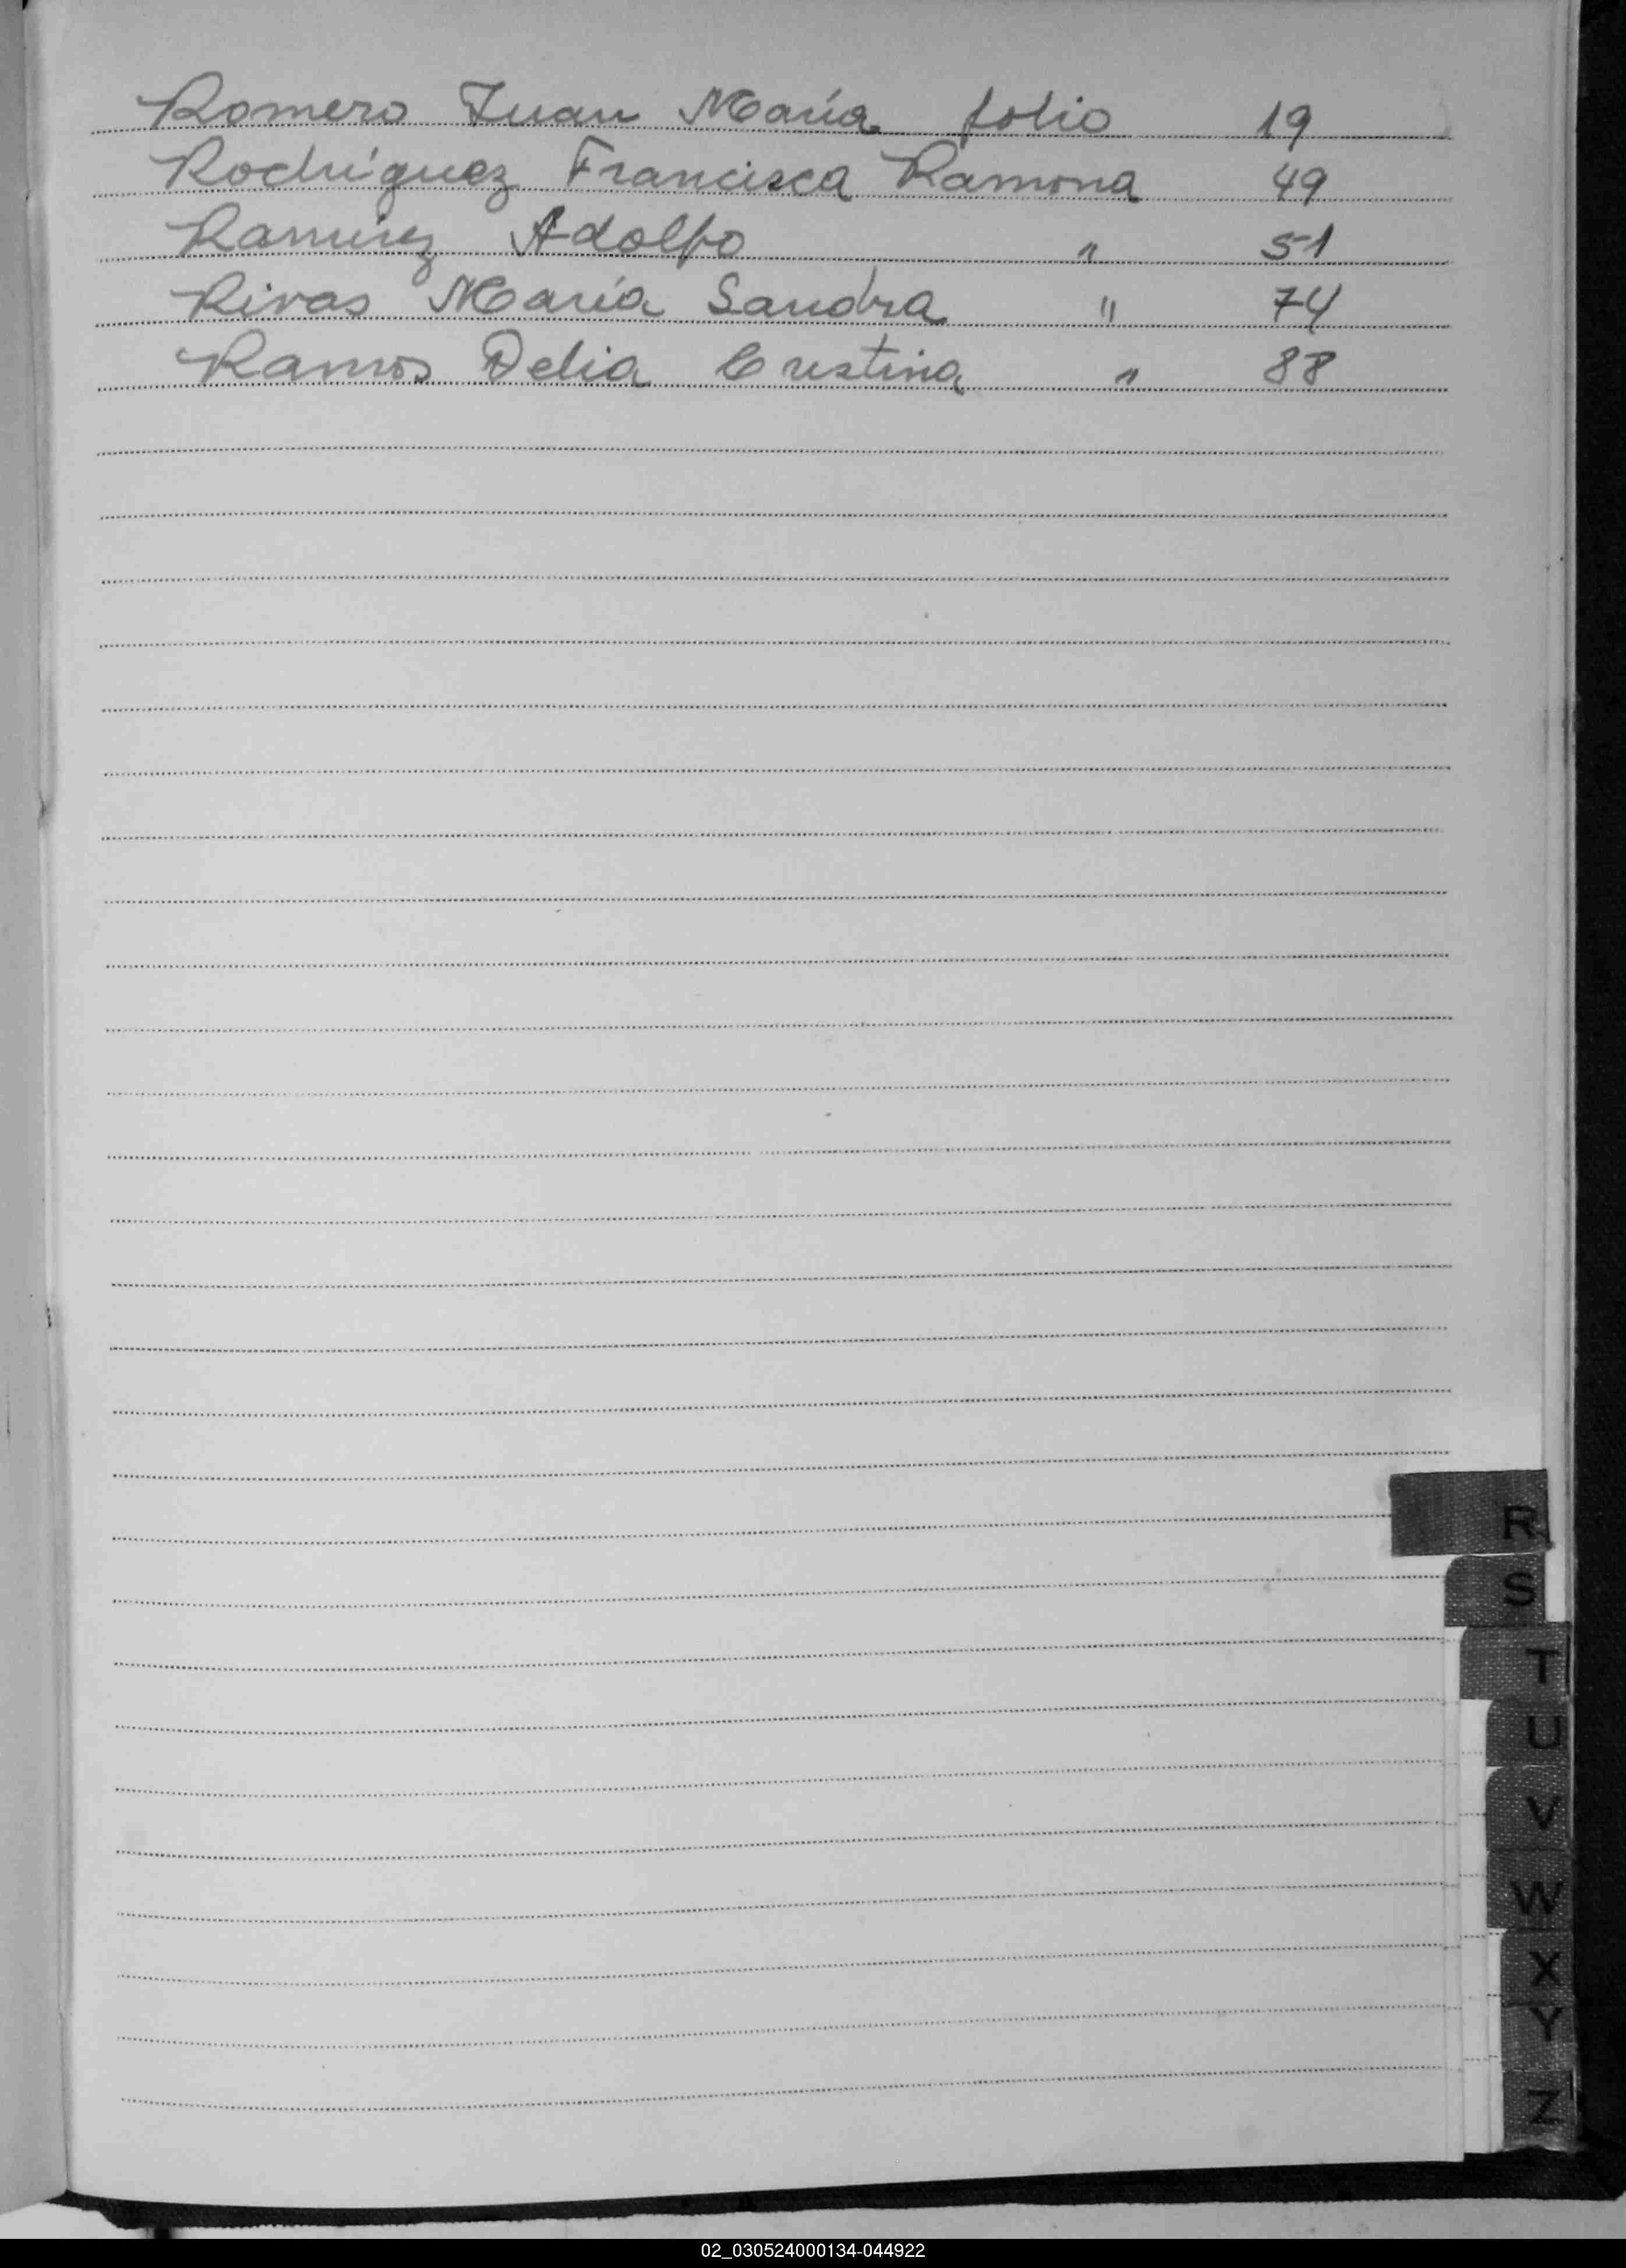 Romero Juan María folio 19
Rodríguez Francisca Ramona 49
Ramírez Adolfo " 51
Rivas María Sandra " 74
Ramos Delia Cristina " 88
R
S
T
U
V
W
X
Y
Z
02_030524000134-044922